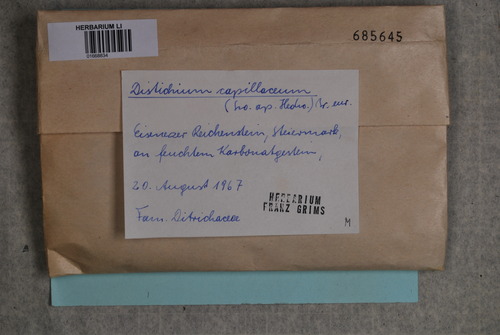 HERBARIUM LI
01668834
685645
Distichium capillaceum
(Sw. ap. Hedw.) Br. eur.
Eisenerzer Reichenstein, Steiermark,
an feuchtem Karbonatgestein,
20. August 1967
HERBARIUM
FRANZ GRIMS
Fam. Ditrichaceae
M